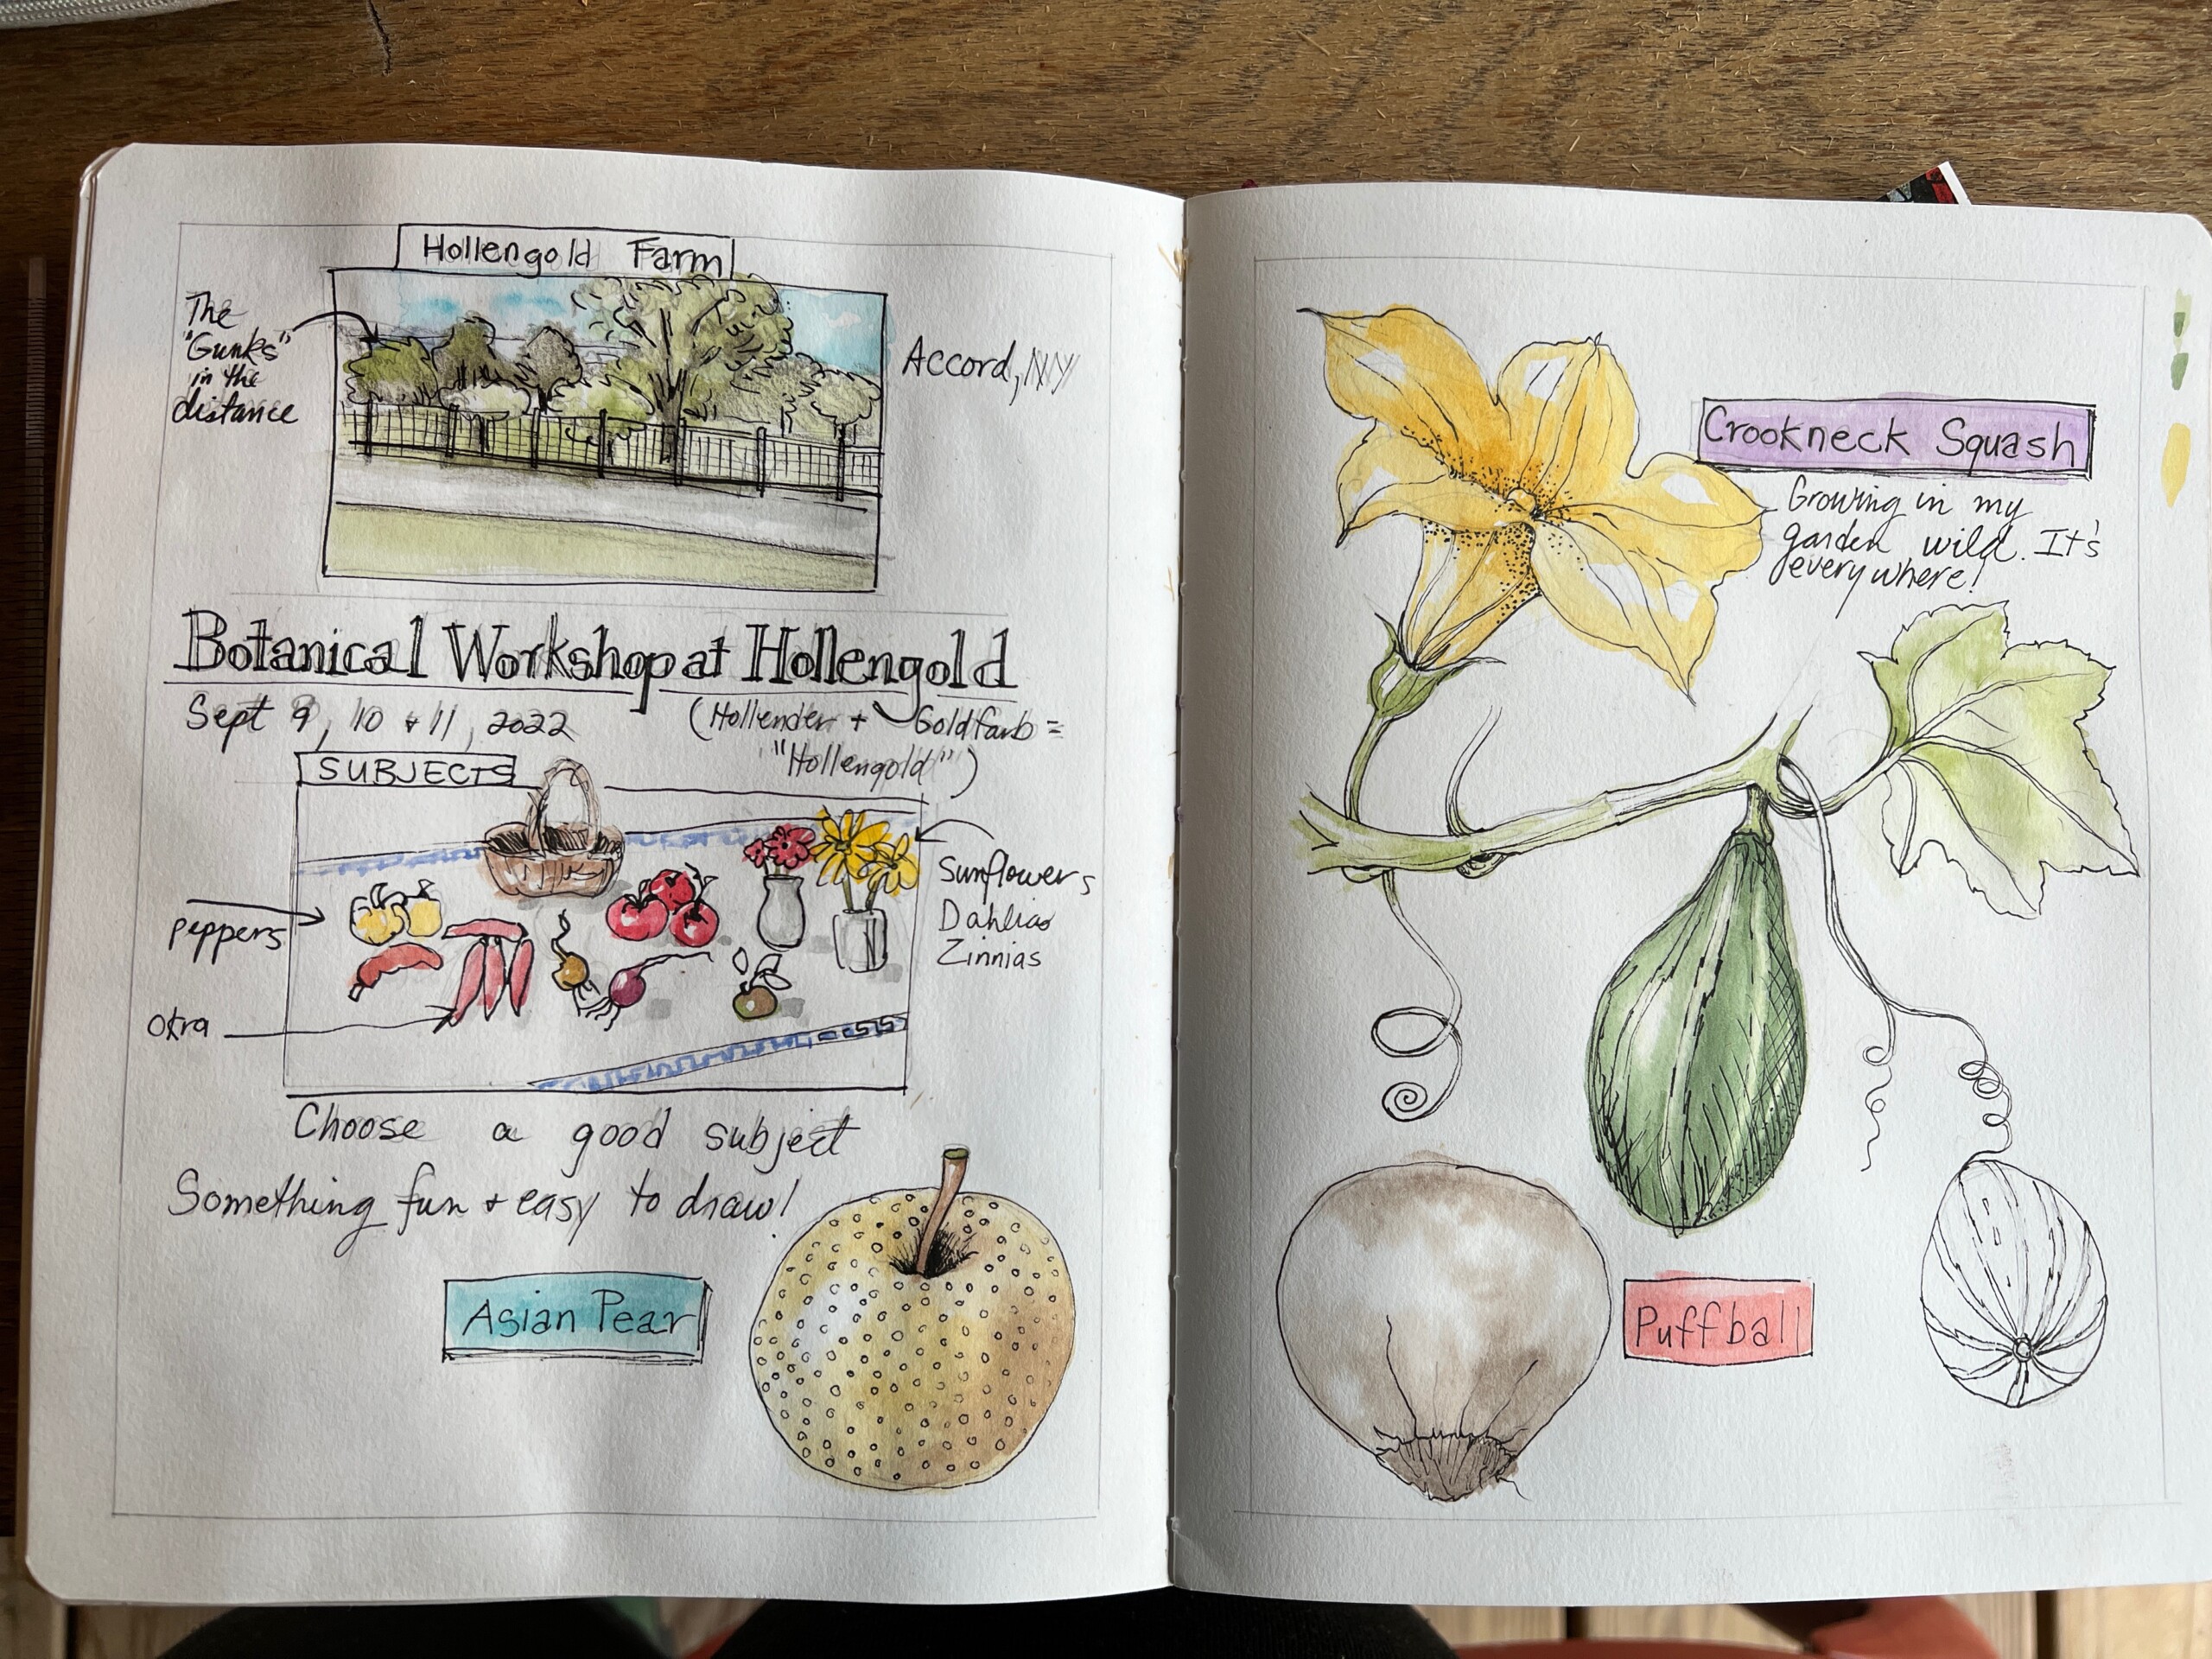 Hollengold Farm
The
"Gunks"
in the
distance
Accord, NY
Botanical Workshop at Hollengold
Sept 9, 10 + 11, 2022
(Hollender + Goldfarb =
"Hollengold")
SUBJECTS
peppers
okra
Sunflowers
Dahlias
Zinnias
Choose a good subject
Something fun + easy to draw!
Asian Pear
Crookneck Squash
Growing in my
garden wild. It's
everywhere!
Puffball